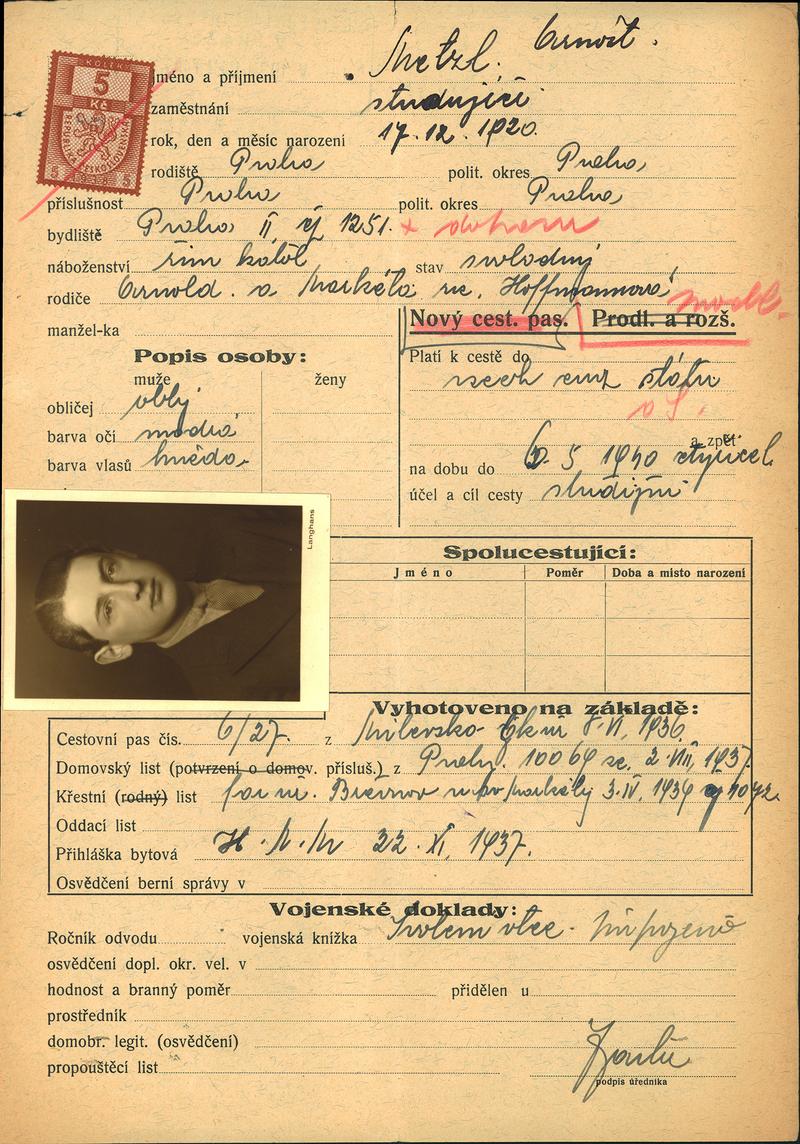 KOLEK
5
Kč
REPUBLIKA ČESKOSLOVENSKÁ
5 5
Jméno a příjmení Metzl. Arnošt.
zaměstnání studující
rok, den a měsíc narození 17.12.1920.
rodiště Praha polit. okres Praha
příslušnost Praha polit. okres Praha
bydliště Praha II čj 1251. +
náboženství řím katol stav svobodný
rodiče Arnold. a Markéta Hoffmannová
manžel-ka
Nový cest. pas. Prodl. a rozš.
Popis osoby:
muže ženy
obličej oblý
barva očí modrá
barva vlasů hnědá
Platí k cestě do
všech států
a zpět
na dobu do 6. 5 1940
účel a cíl cesty studijní
Langhans
Spolucestující:
Jméno Poměr Doba a místo narození
Vyhotoveno na základě:
Cestovní pas čís. 6/27. z Milevsko 8.VI. 1936.
Domovský list (potvrzení o domov. přísluš.) z Prahy. 10069 2.VIII. 1937.
Křestní (rodný) list Břevnov Markéty 3.IV. 1936
Oddací list
Přihláška bytová 22. XI. 1937.
Osvědčení berní správy v
Vojenské doklady:
Ročník odvodu vojenská knížka
osvědčení dopl. okr. vel. v
hodnost a branný poměr přidělen u
prostředník
domobr. legit. (osvědčení)
propouštěcí list
podpis úředníka